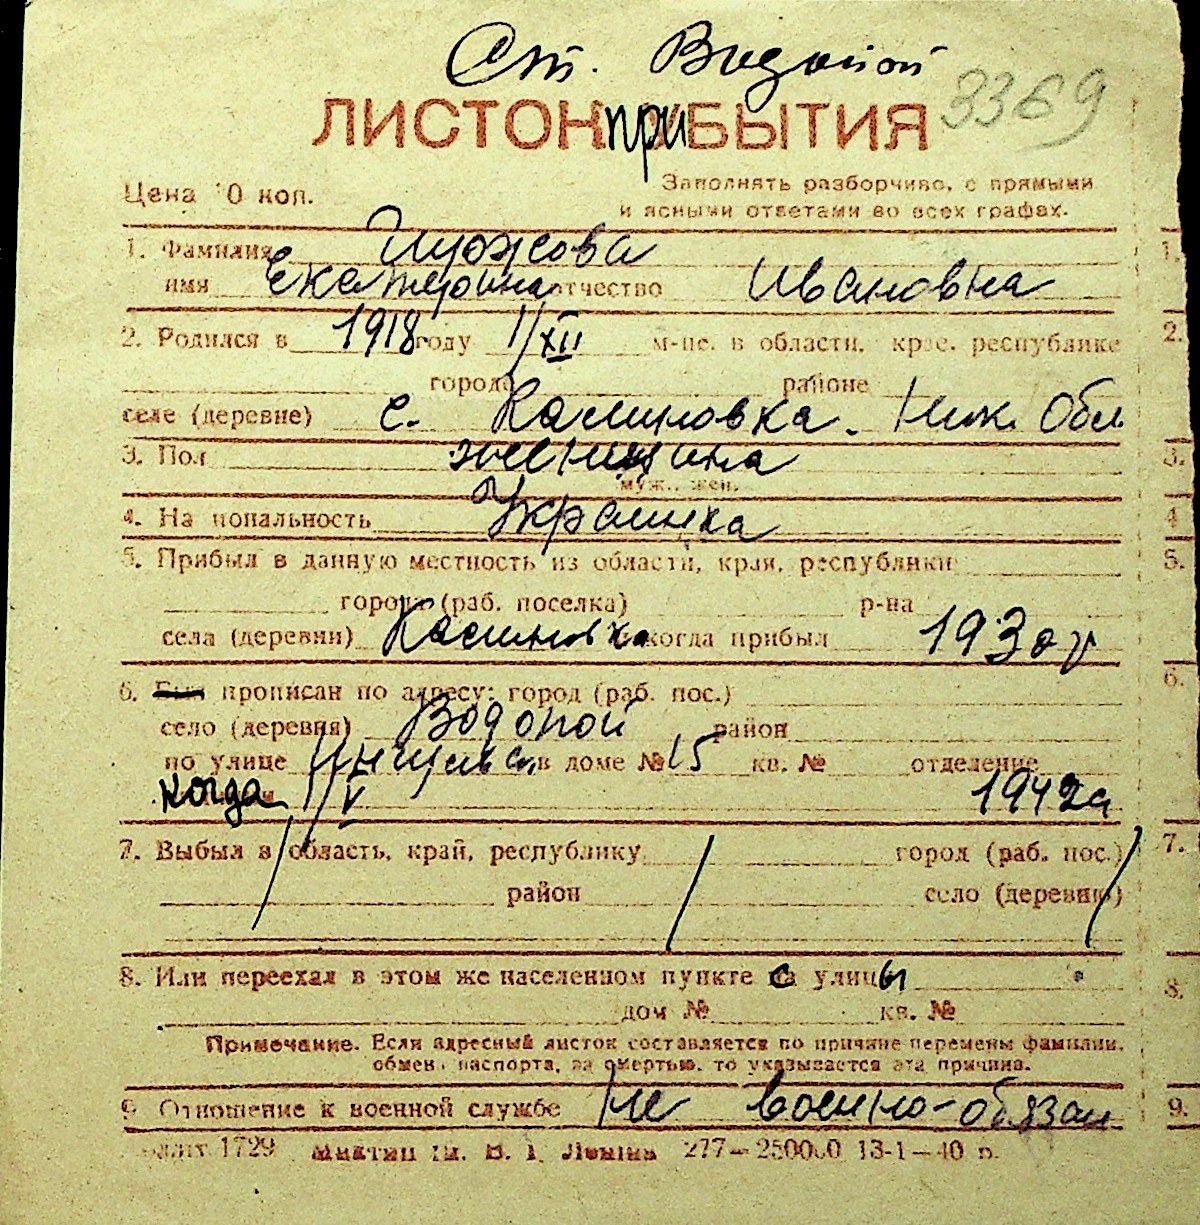 Ст. Водопой
ЛИСТОК при БЫТИЯ 3369
Цена 10 коп. Заполнять разборчиво, с прямыми
и ясными ответами во всех графах.
1. Фамилия
имя Екатерина отчество Ивановна
2. Родился в 1918 году 1/XII м-це, в области, крае, республике
города районе
селе (деревне) с. Калиновка. Ник. Обл
3. Пол женщина
муж., жен.
4. Национальность Украинка
5. Прибыл в данную местность из области, края, республики
города (раб. поселка) р-на
села (деревни) Калиновка когда прибыл 1930 г
6. Был прописан по адресу: город (раб. пос.)
село (деревня) Водопой район
по улице в доме № 15 кв. № отделение
когда 1/V 1942 г
7. Выбыл в область, край, республику город (раб. пос.)
район село (деревню)
8. Или переехал в этом же населенном пункте с улицы
дом № кв. №
Примечание. Если адресный листок составляется по причине перемены фамилии,
обмена паспорта, за смертью, то указывается эта причина.
9. Отношение к военной службе Не военно-обязан
1729 Ленина 277—250000 13-1—40 р.
1.
2.
3.
4
5.
6.
7.
8.
9.